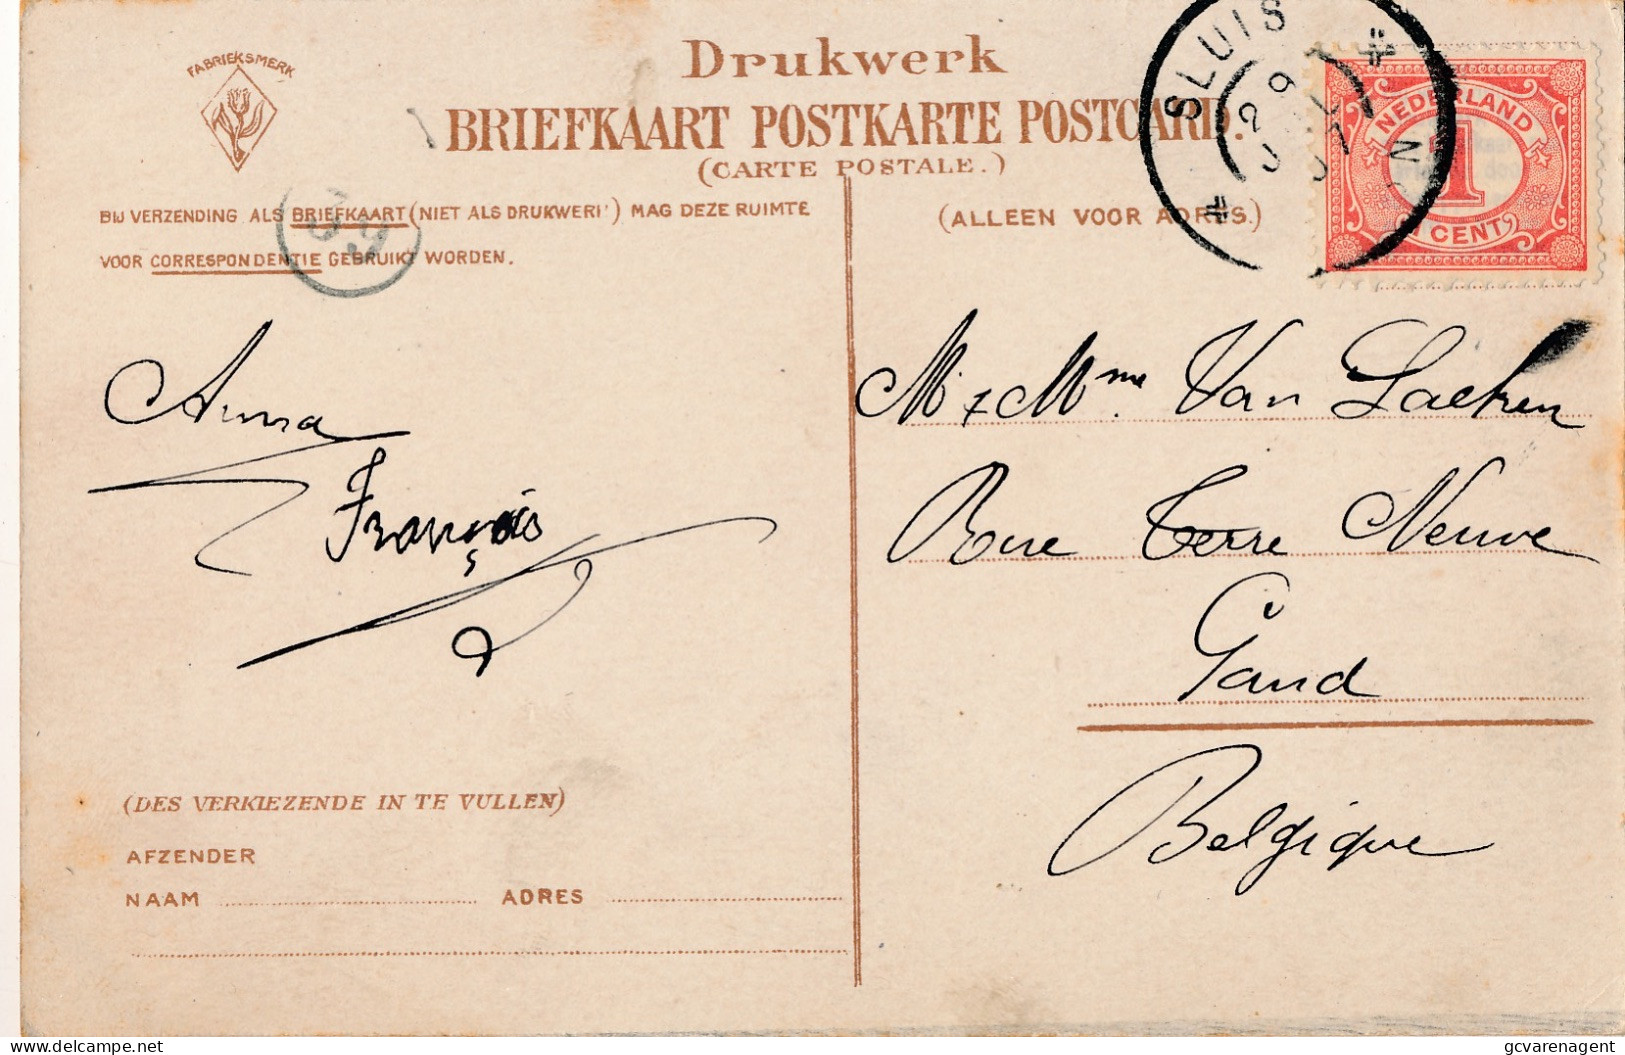 FABRIEKSMERK
Drukwerk
BRIEFKAART POSTKARTE POSTCARD.
(CARTE POSTALE.)
BIJ VERZENDING ALS BRIEFKAART (NIET ALS DRUKWERK) MAG DEZE RUIMTE
VOOR CORRESPONDENTIE GEBRUIKT WORDEN.
39
(ALLEEN VOOR ADRES.)
SLUIS
29
NEDERLAND
1
1 CENT
Anna
François
M & Mme. Van Laeken
Rue Terre Neuve
Gand
Belgique
(DES VERKIEZENDE IN TE VULLEN)
AFZENDER
NAAM ADRES
delcampe.net
gcvarenagent